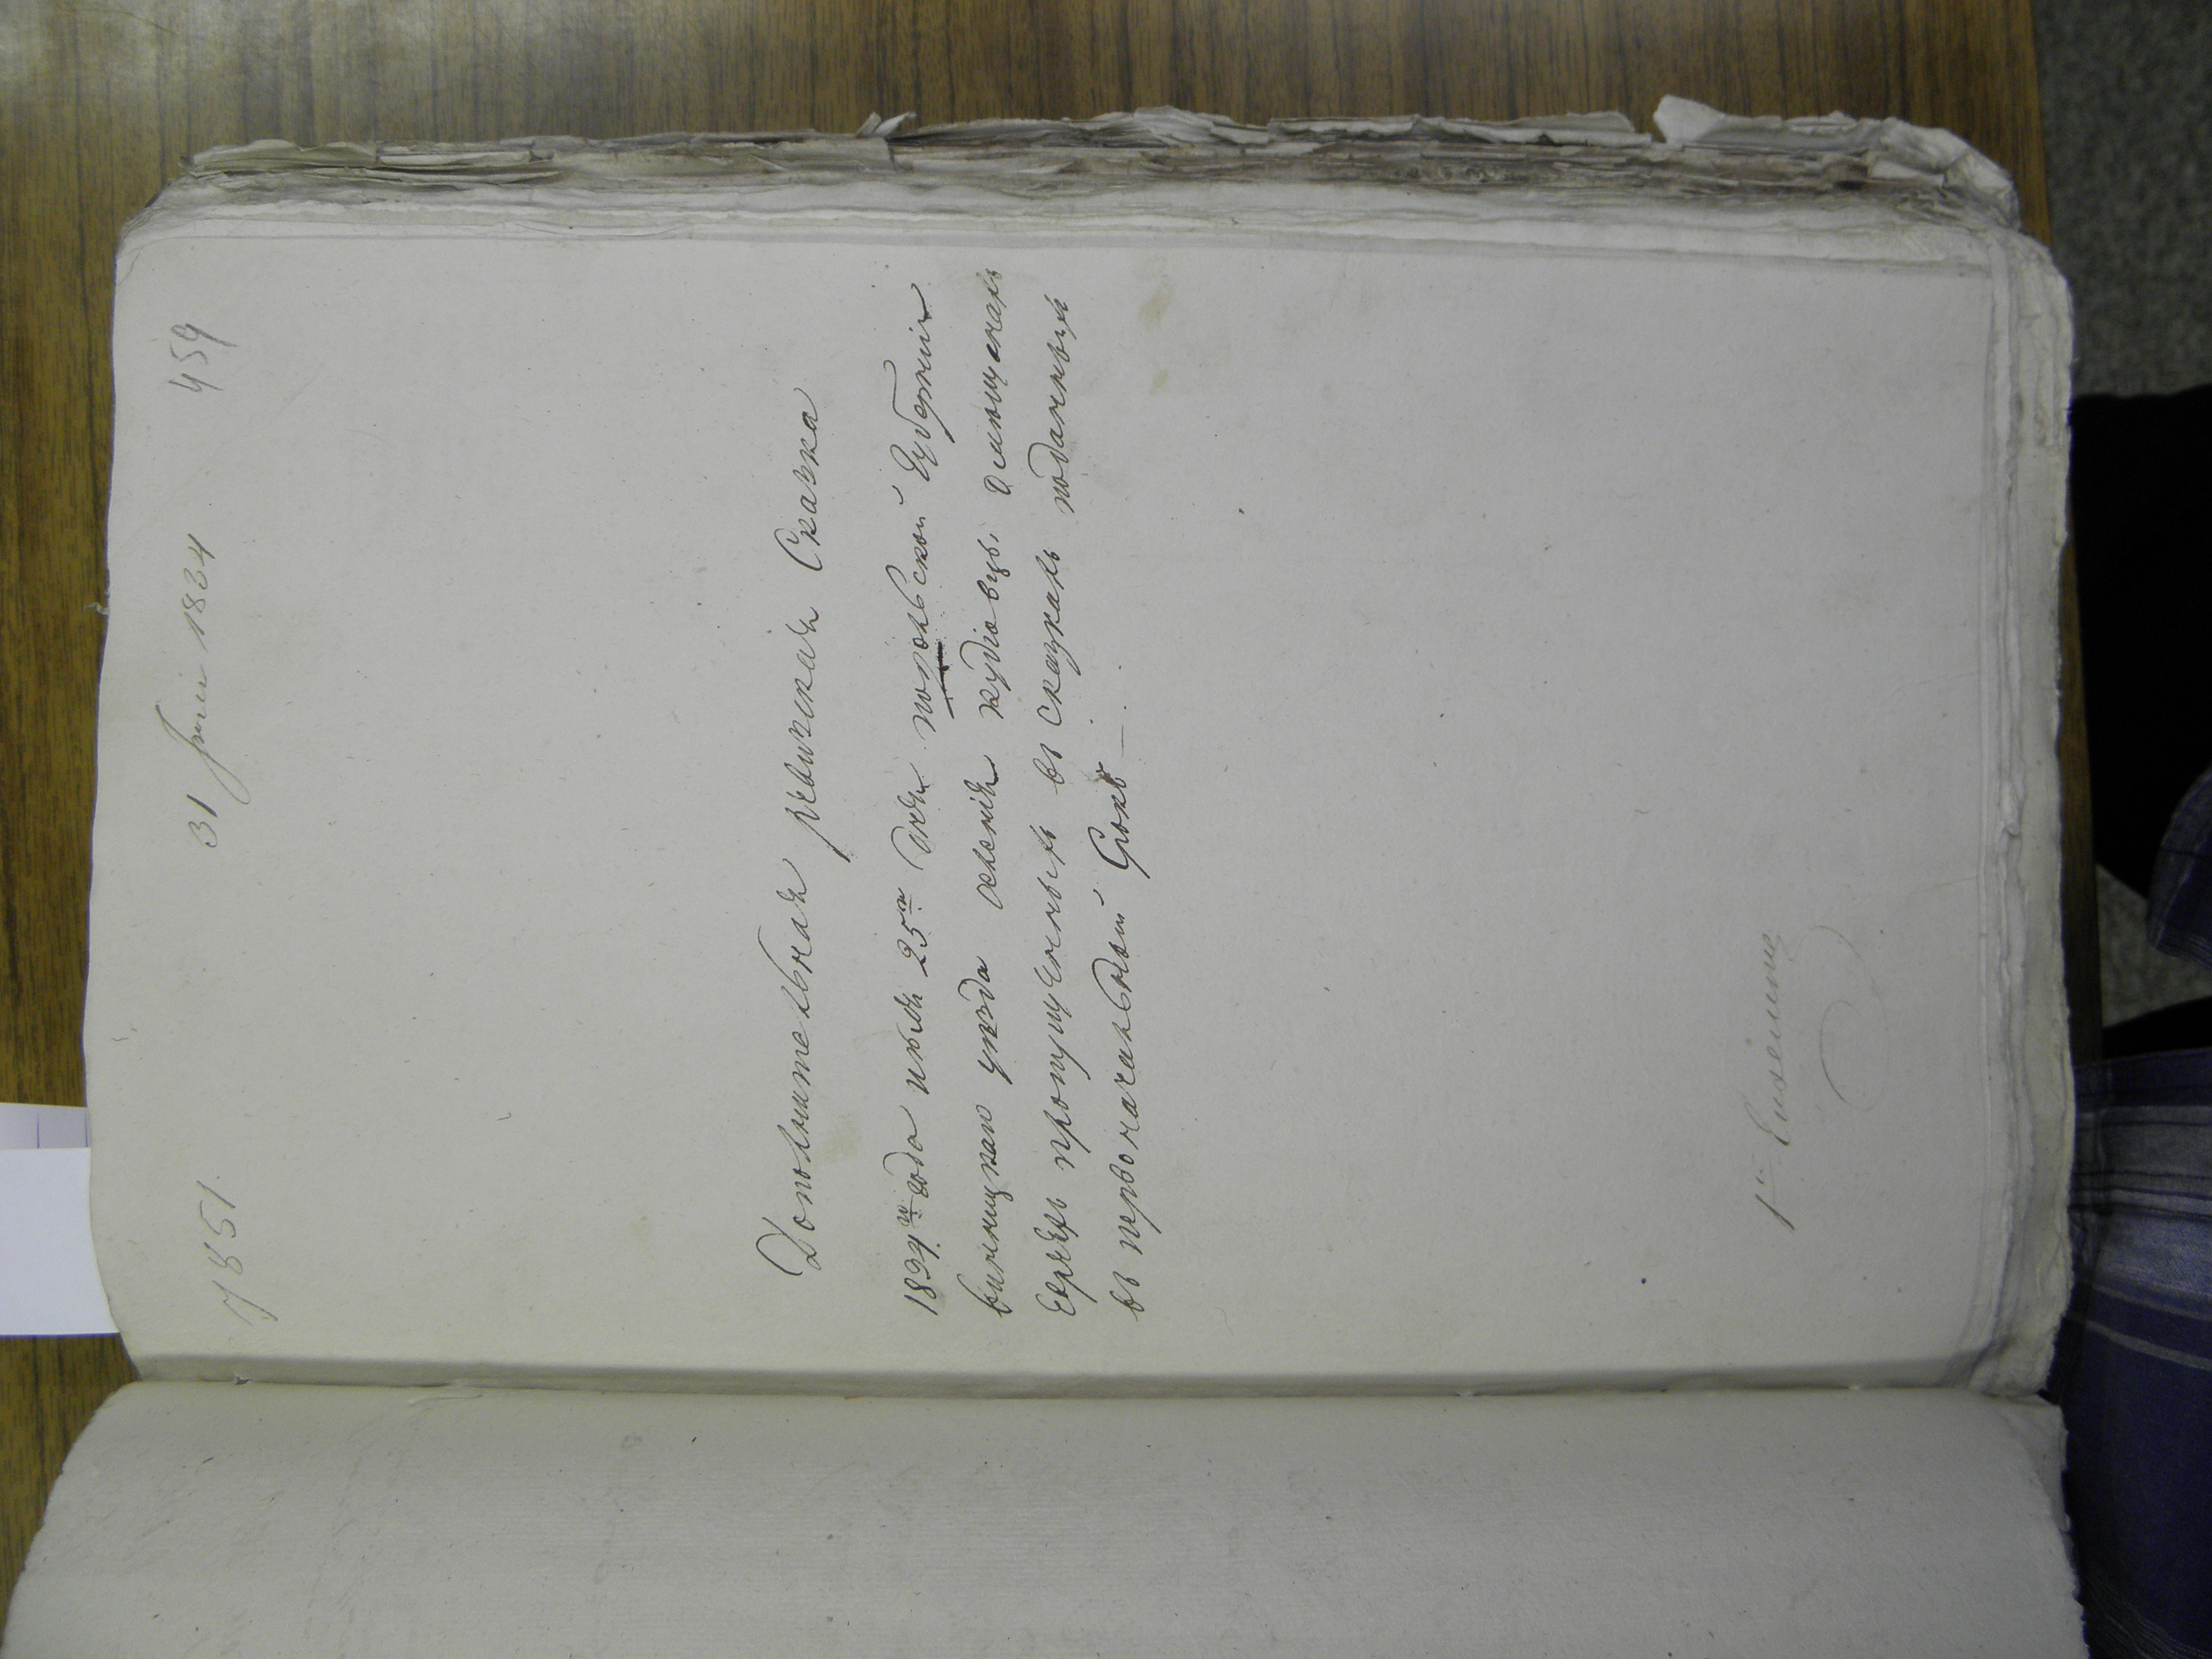 7851 31 Іюля 1834 459
Дополнительная ревизская Сказка
1834го года июля 25го дня подольской Губернии
винницкаго уезда селения кудіовцы о мющенахъ
Евреяхъ пропущенныхъ въ сказкахъ поданныхъ
въ первоначальный Срокъ —